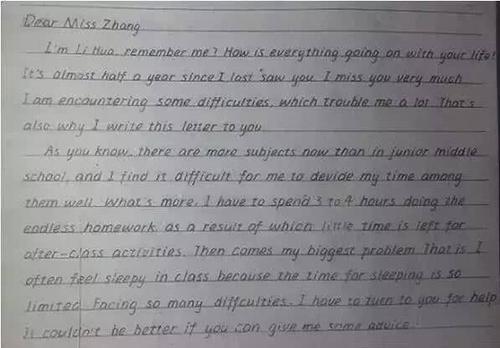 Dear Miss Zhang
I'm Li Hua, remember me? How is everything going on with your life?
It's almost half a year since I last saw you. I miss you very much
I am encountering some difficulties, which trouble me a lot. That's
also why I write this letter to you
As you know, there are more subjects now than in junior middle
school, and I find it difficult for me to devide my time among
them well. What's more, I have to spend 3 to 4 hours doing the
endless homework, as a result of which little time is left for
after-class activities. Then comes my biggest problem. That is I
often feel sleepy in class because the time for sleeping is so
limited. Facing so many diffculties, I have to turn to you for help
It couldn't be better if you can give me some advice.